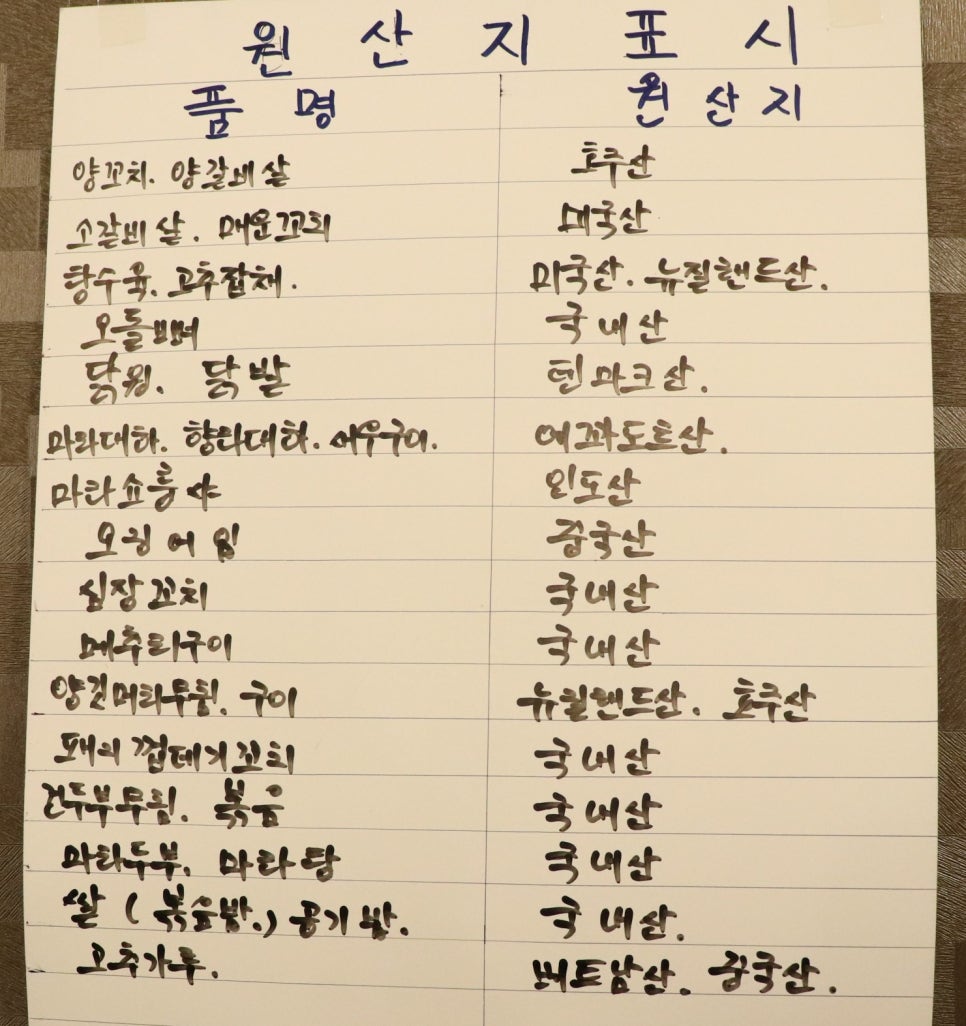 원 산 지 표 시
품 명 원 산 지
양꼬치. 양갈비살 호주산
소갈비 살. 매운꼬치 미국산
탕수육. 고추잡채. 미국산. 뉴질랜드산.
오돌뼈 국내산
닭윙. 닭발 덴마크산.
마라대하. 향라대하. 새우구이. 에콰도르산.
마라쇼룽샤 인도산
오징어입 중국산
심장꼬치 국내산
메추리구이 국내산
양건머리무침. 구이 뉴질랜드산. 호주산
돼지껍데기꼬치 국내산
건두부무침. 볶음 국내산
마라두부. 마라탕 국내산
쌀 (볶음밥.) 공기밥. 국내산.
고추가루. 베트남산. 중국산.